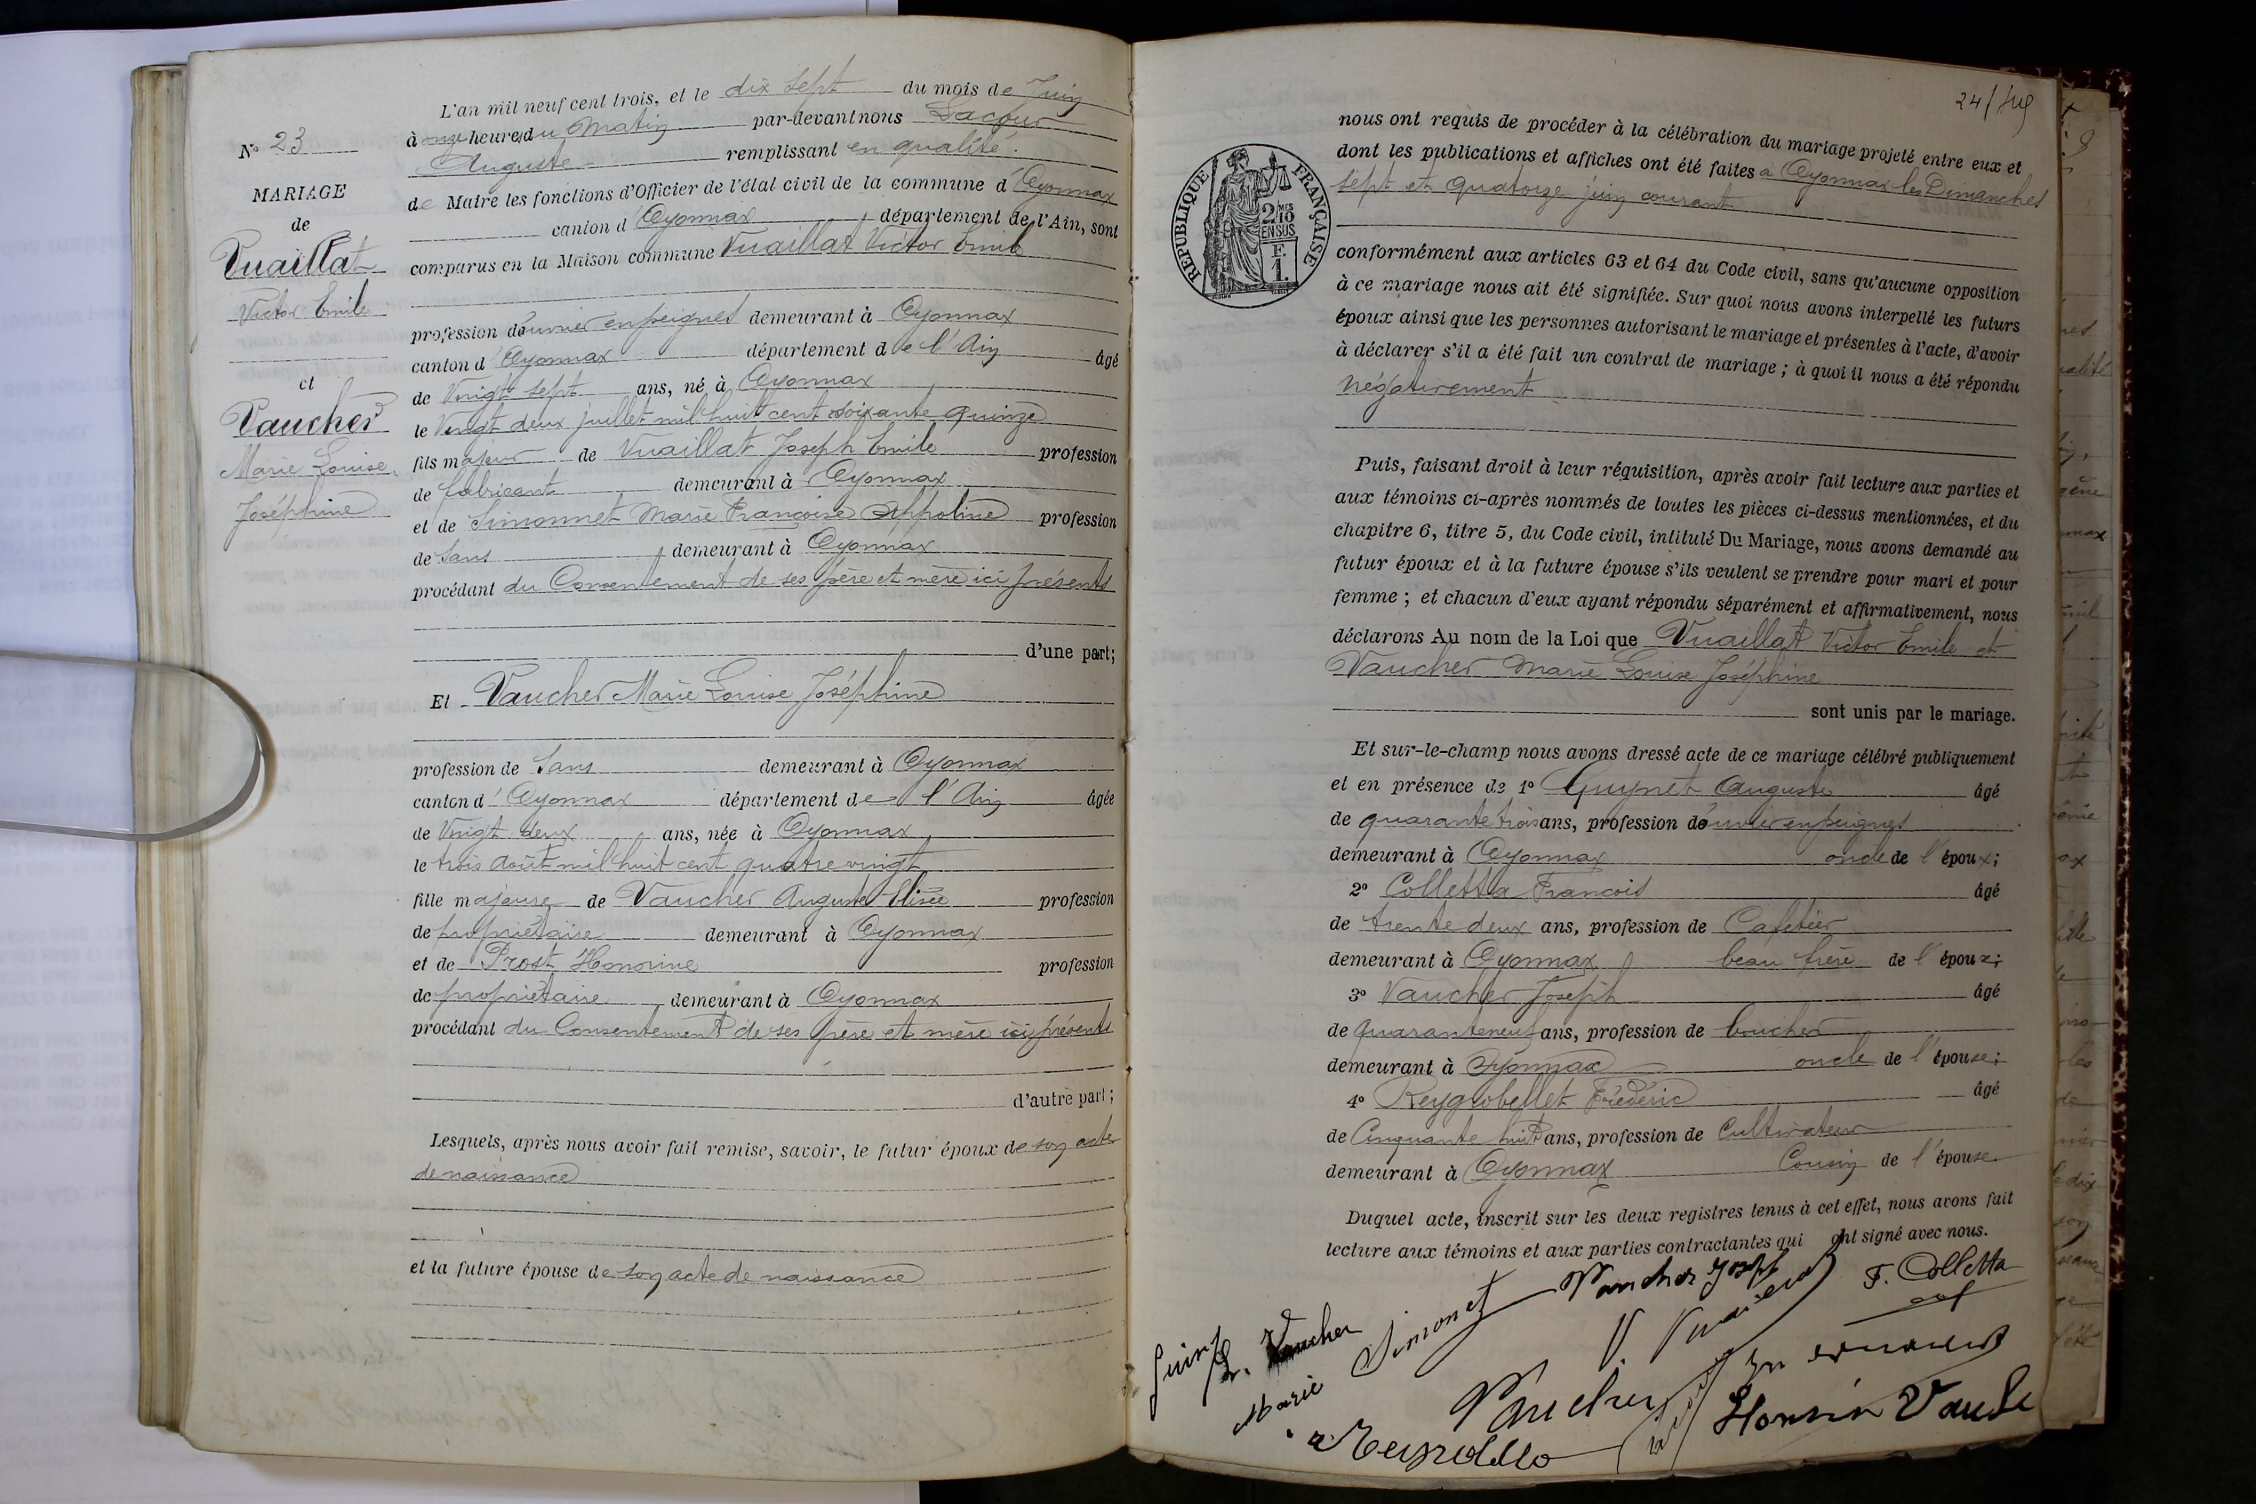 N° 23
MARIAGE
de
Vuaillat
Victor Emile
et
Vaucher
Marie Louise
Joséphine
L'an mil neuf cent trois, et le dix sept du mois de Juin
à onze heures du Matin par-devant nous Lacour
Auguste remplissant en qualité
de Maire les fonctions d'Officier de l'état civil de la commune d'Oyonnax
canton d'Oyonnax département de l'Ain, sont
comparus en la Maison commune Vuaillat Victor Emile
profession d'ouvrier en peignes demeurant à Oyonnax
canton d'Oyonnax département de l'Ain âgé
de Vingt sept ans, né à Oyonnax
le Vingt deux juillet mil huit cent soixante quinze
fils majeur de Vuaillat Joseph Emile profession
de fabricant demeurant à Oyonnax
et de Simonnet Marie Françoise Appoline profession
de Sans demeurant à Oyonnax
procédant du Consentement de ses père et mère ici présents
d'une part;
Et Vaucher Marie Louise Joséphine
profession de Sans demeurant à Oyonnax
canton d'Oyonnax département de l'Ain âgée
de Vingt deux ans, née à Oyonnax
le trois août mil huit cent quatre vingt
fille majeure de Vaucher Auguste Elisée profession
de propriétaire demeurant à Oyonnax
et de Prost Honorine profession
de propriétaire demeurant à Oyonnax
procédant du Consentement de ses père et mère ici présents
d'autre part;
Lesquels, après nous avoir fait remise, savoir, le futur époux de son acte
de naissance
et la future épouse de son acte de naissance
24/
RÉPUBLIQUE FRANÇAISE
2 MES 10
EN SUS
F.
1.
nous ont requis de procéder à la célébration du mariage projeté entre eux et
dont les publications et affiches ont été faites à Oyonnax les Dimanches
sept et quatorze juin courant
conformément aux articles 63 et 64 du Code civil, sans qu'aucune opposition
à ce mariage nous ait été signifiée. Sur quoi nous avons interpellé les futurs
époux ainsi que les personnes autorisant le mariage et présentes à l'acte, d'avoir
à déclarer s'il a été fait un contrat de mariage; à quoi il nous a été répondu
négativement
Puis, faisant droit à leur réquisition, après avoir fait lecture aux parties et
aux témoins ci-après nommés de toutes les pièces ci-dessus mentionnées, et du
chapitre 6, titre 5, du Code civil, intitulé Du Mariage, nous avons demandé au
futur époux et à la future épouse s'ils veulent se prendre pour mari et pour
femme; et chacun d'eux ayant répondu séparément et affirmativement, nous
déclarons Au nom de la Loi que Vuaillat Victor Emile et
Vaucher Marie Louise Joséphine
sont unis par le mariage.
Et sur-le-champ nous avons dressé acte de ce mariage célébré publiquement
et en présence de 1° Guynet Auguste âgé
de quarante trois ans, profession d'ouvrier en peignes
demeurant à Oyonnax oncle de l'époux;
2° Colletta François âgé
de trente deux ans, profession de Cafetier
demeurant à Oyonnax beau frère de l'époux;
3° Vaucher Joseph âgé
de quarante neuf ans, profession de boucher
demeurant à Oyonnax oncle de l'épouse;
4° Reygrobellet Frédéric âgé
de Cinquante huit ans, profession de Cultivateur
demeurant à Oyonnax Cousin de l'épouse
Duquel acte, inscrit sur les deux registres tenus à cet effet, nous avons fait
lecture aux témoins et aux parties contractantes qui ont signé avec nous.
Vaucher Joseph
F. Colletta
L. Vaucher
Marie Simonet
Vaucher